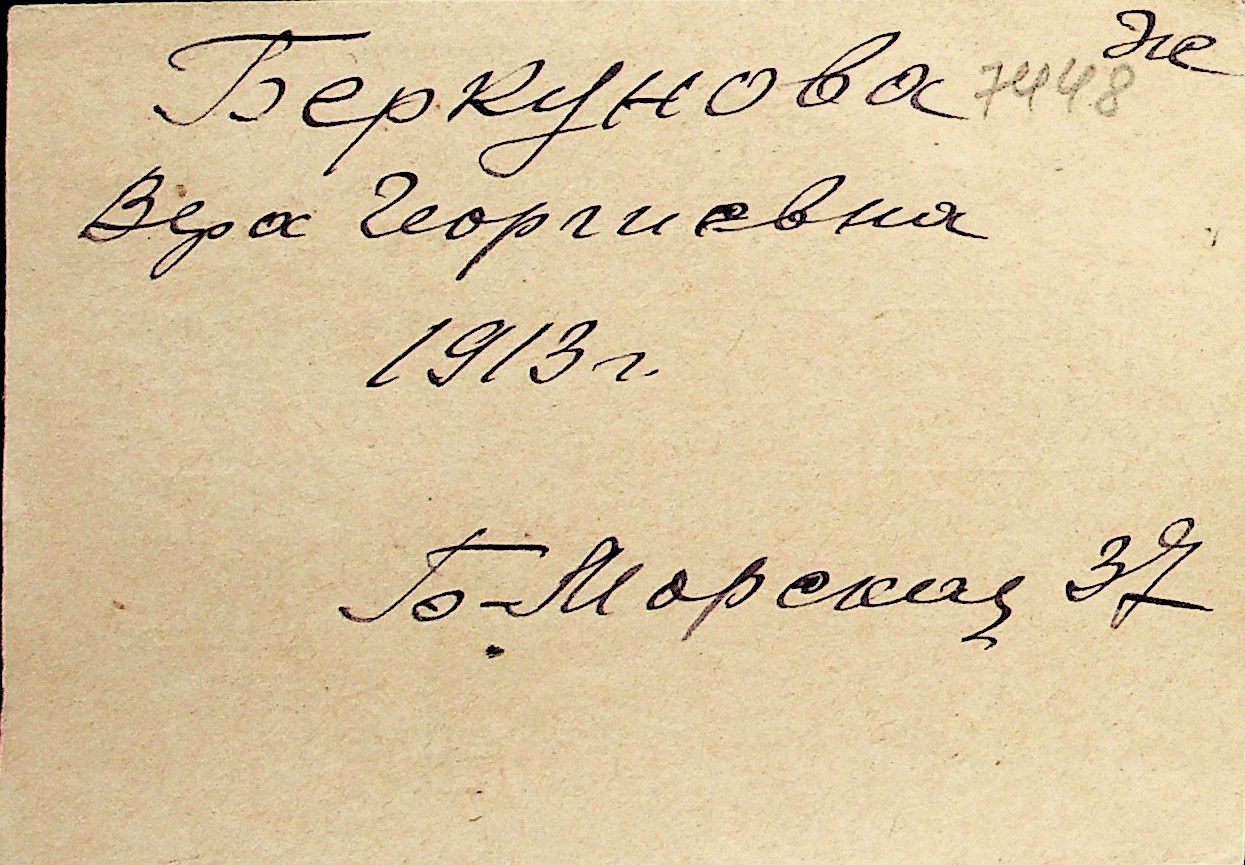 Беркунова 7448 же
Вера Георгиевна
1913 г.
Б-Морская 37